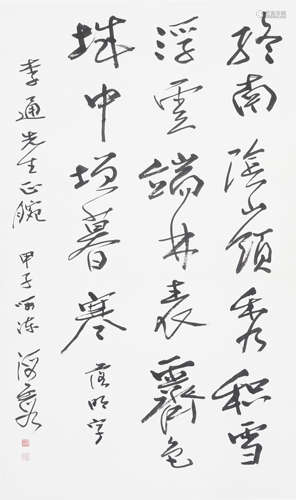 終南陰嶺秀積雪
浮雲端林表霽色
城中增暮寒 落明字
李通先生正腕 甲子呵冻